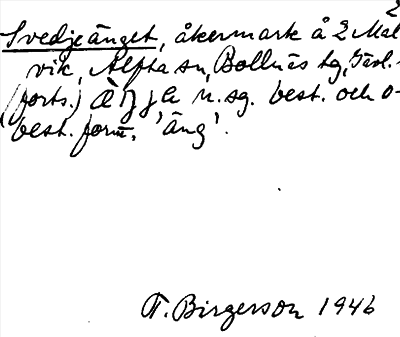 2
Svedjeänget, åkermark å 2 Mal-
vik, Alfta sn, Bollnäs tg, Gävl.
(forts.) æŋja n. sg. best. och o-
best. form. 'äng'.
T. Birgerson 1946